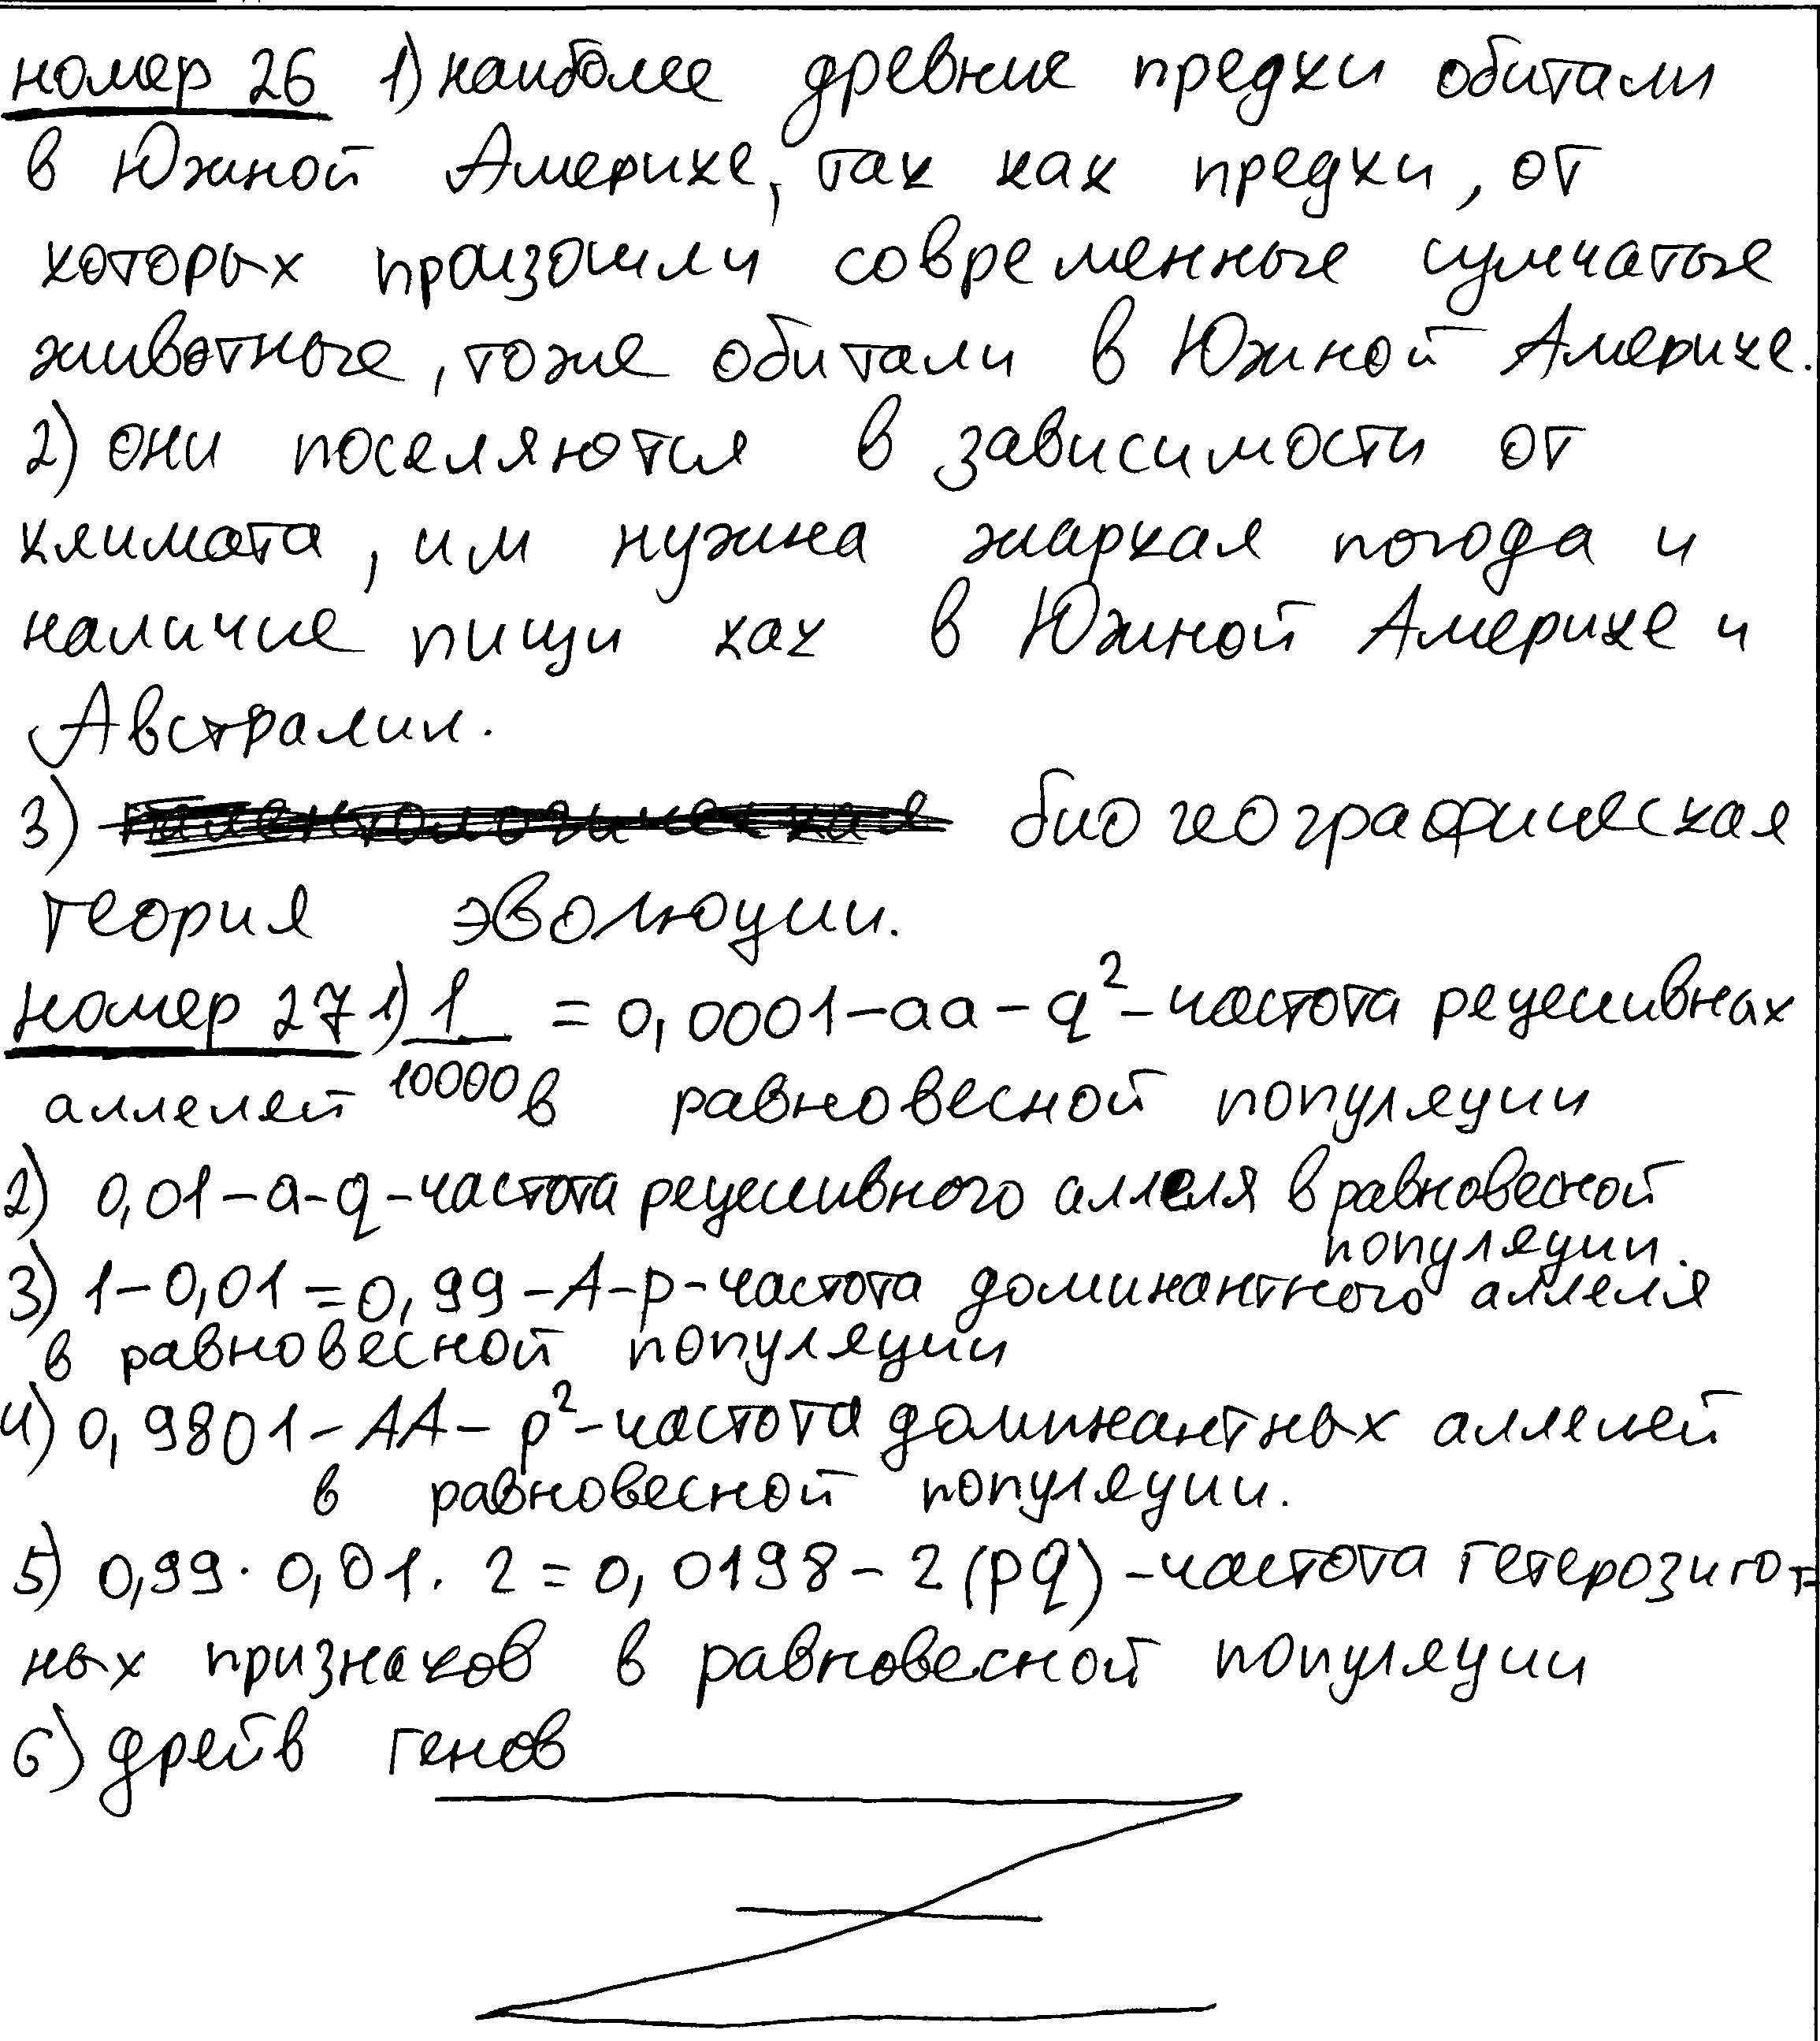 номер 26 1) наиболее древние предки обитали
в Южной Америке, так как предки, от
которых произошли современные сумчатые
животные, тоже обитали в Южной Америке.
2) они поселяются в зависимости от
климата, им нужна жаркая погода и
наличие пищи как в Южной Америке и
Австралии.
3) биогеографическая
теория эволюции.
номер 27 1) 1/10000 = 0,0001 – aa – q² – частота рецессивных
аллелей в равновесной популяции
2) 0,01 – a – q – частота рецессивного аллеля в равновесной
популяции.
3) 1 – 0,01 = 0,99 – A – p – частота доминантного аллеля
в равновесной популяции
4) 0,9801 – AA – p² – частота доминантных аллелей
в равновесной популяции.
5) 0,99 · 0,01 · 2 = 0,0198 – 2(pq) – частота гетерозигот-
ных признаков в равновесной популяции
6) дрейв генов